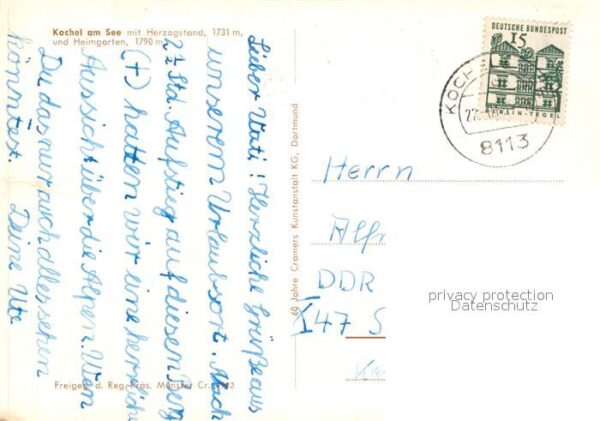 Kochel am See mit Herzogstand, 1731 m,
und Heimgarten, 1790 m
Lieber Vati! Herzliche Grüße aus
unserem Urlaubsort. Nach
2½ Std. Aufstieg auf diesen Berg
(+) hatten wir eine herrliche
Aussicht über die Alpen. Wenn
Du das nur auch alles sehen
könntest. Deine Ute
Freigeg. d. Reg. Präs. Münster
60 Jahre Cramers Kunstanstalt KG, Dortmund
DEUTSCHE BUNDESPOST
15
BERLIN-TEGEL
KOCH
8113
Herrn
Alfr
DDR
X47 S
privacy protection
Datenschutz